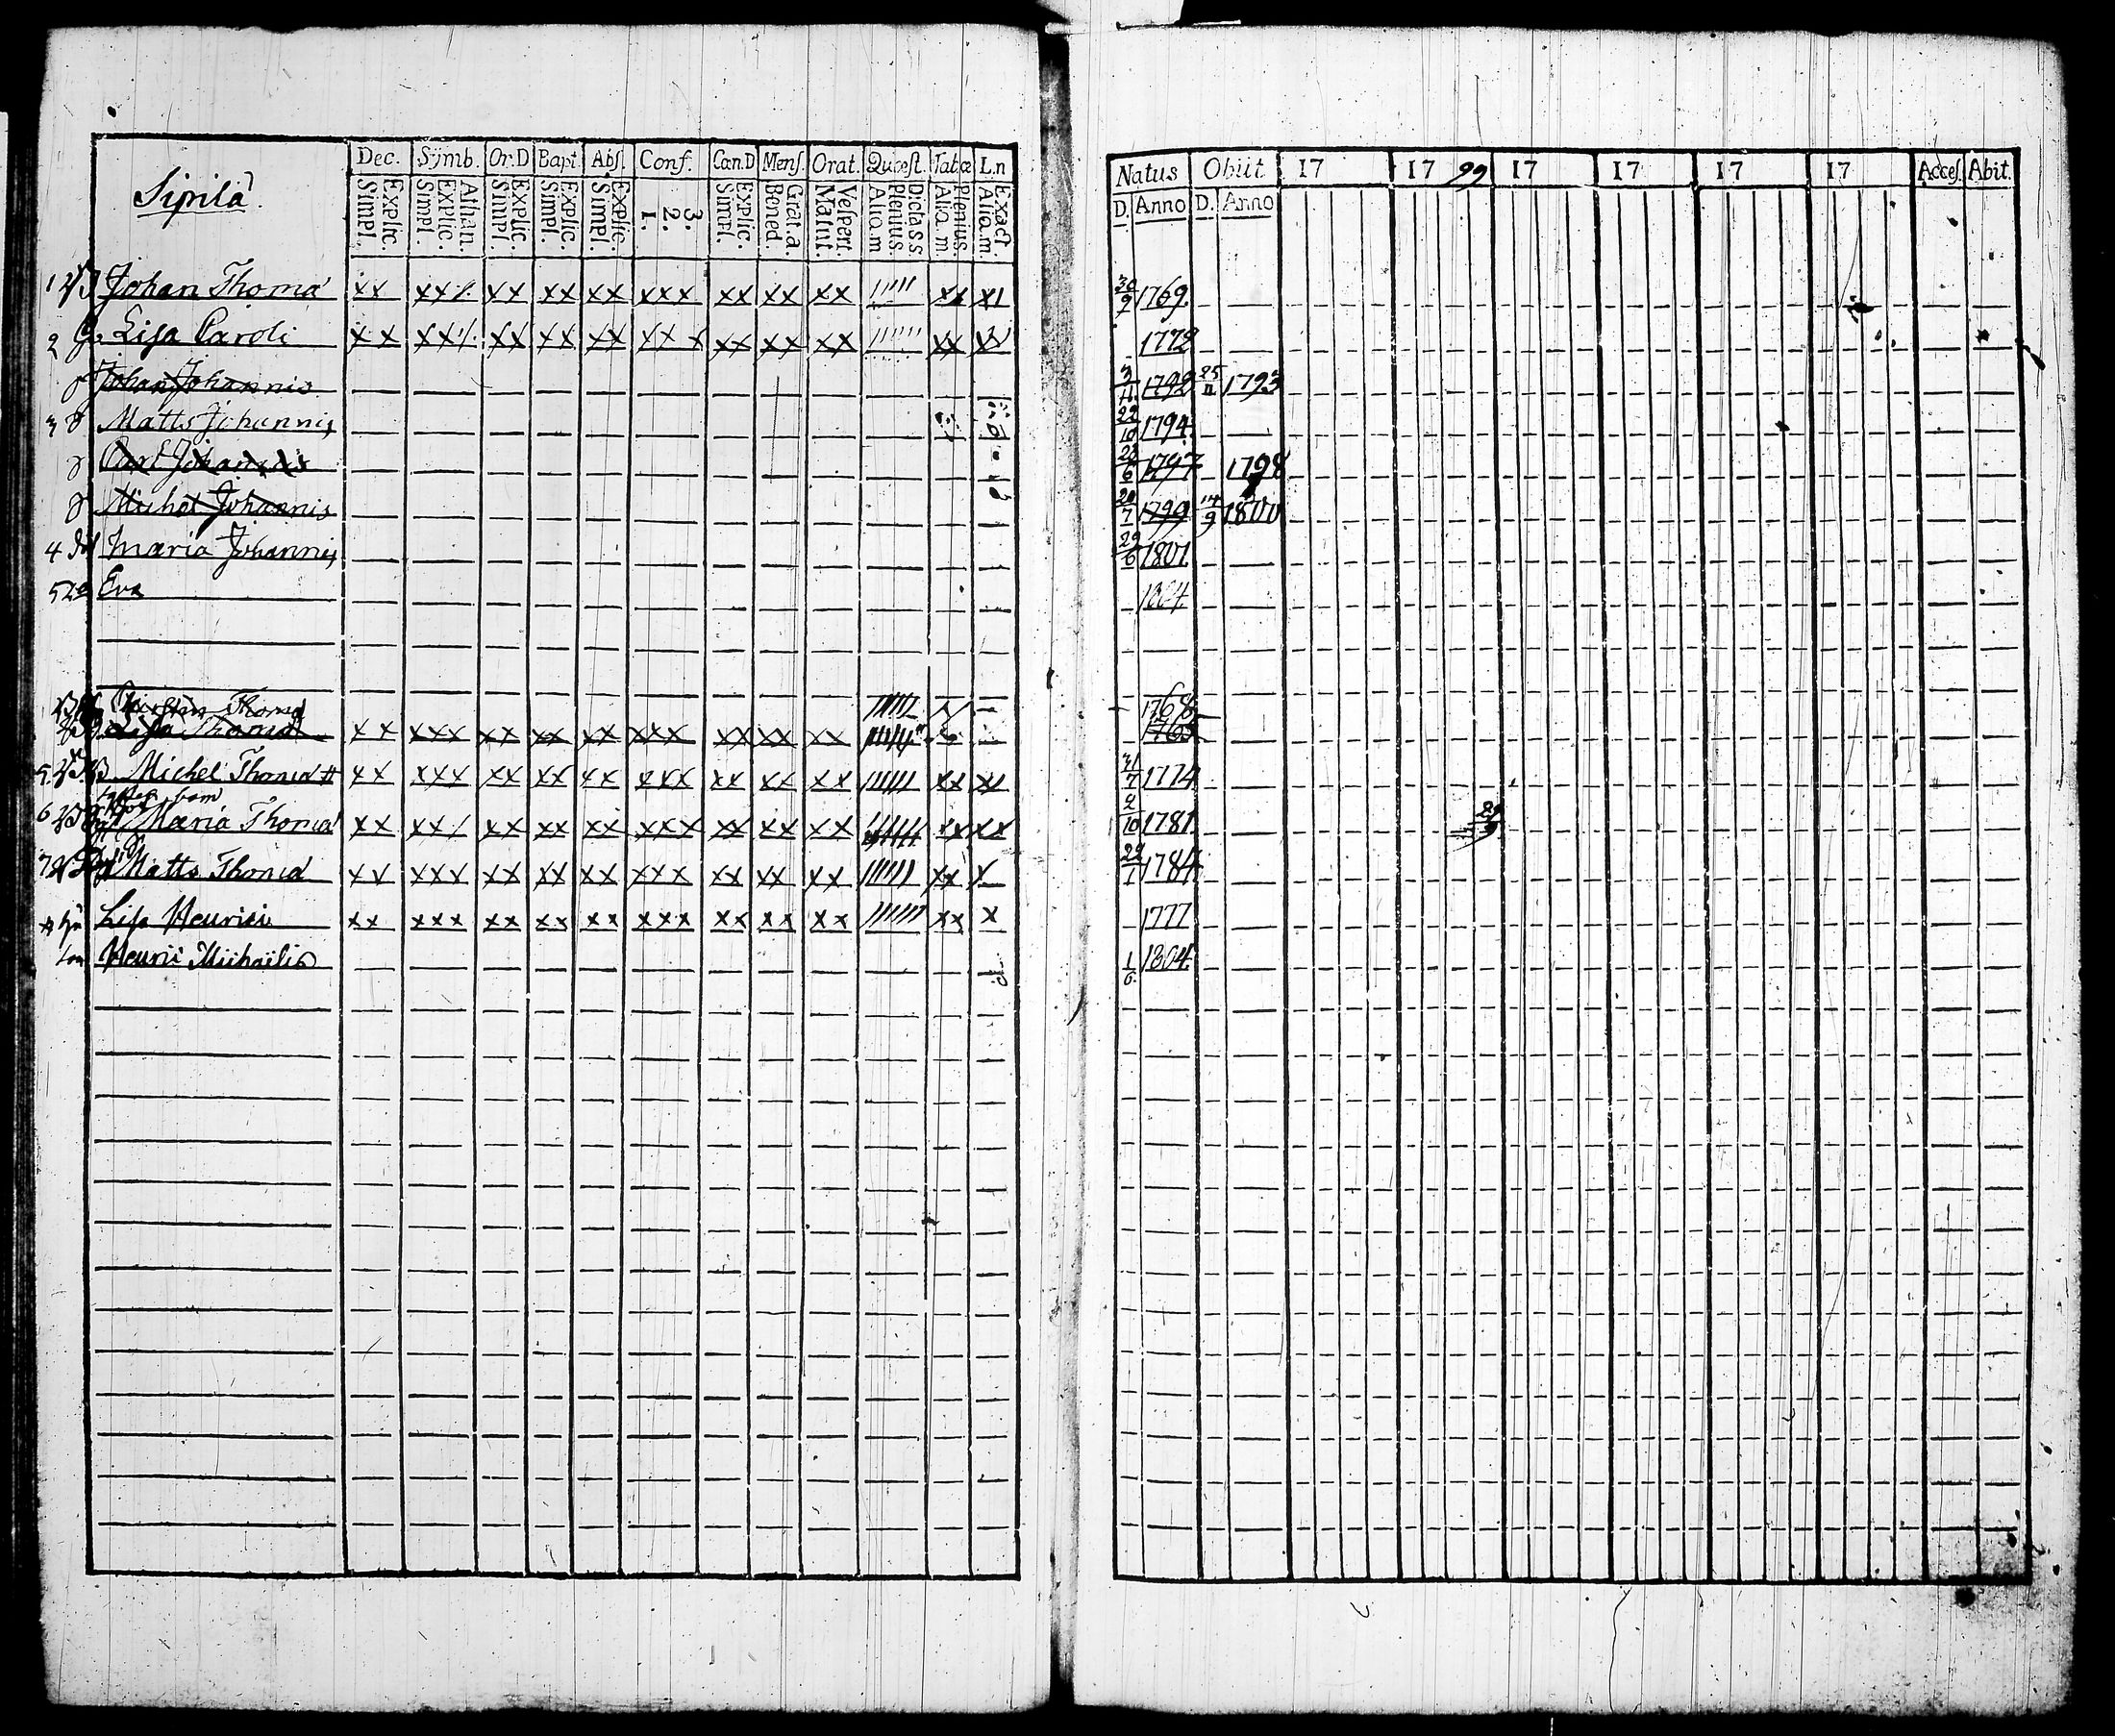 Sipilä
Dec. Symb. Or.D Bapt Abſ. Conf. Cœn.D Menſ. Orat. Quœst. Tab.œ L.n
Simpl. Explic. Simpl. Explic. Athan. Simpl. Explic. Simpl. Explic. Simpl. Explic. 1. 2. 3. Simpl. Explic. Bened. Grat.a Mat.nt. Veſpert. Aliq.m Plenius. Dictas s Aliq.m Plenius. Aliq.m. Exact
Natus Obiit 17 17 99 17 17 17 17 Acceſ. Abit.
D. Anno D. Anno
1 Johan Thomæ xx xx xx xx xx xxx xx xx xx xx 30/9 1769
2 Lisa Caroli xx xx xx xx xx xx xx xx 1772
Johan Johannis 3/11 1792 25/11 1793
3 Matts Johannis 22/10 1794
Carl Johannis 28/6 1797 1798
Michel Johannis 20/7 1799 14/9 1800
4 Maria Johannis 29/6 1801
5 Eva 1804
Thomæ 1768
Lisa Thomæ xx xxx xx xx xx xxx xx xx xx
5 Michel Thomæ # xx xxx xx xx xx xxx xx xx xx xx 31/7 1774
6 Maria Thomæ xx xx xx xx xxx xx xx xx xx xx 2/10 1781
7 Matts Thomæ xx xxx xx xx xx xxx xx xx xx xx x 1784
# Lisa Henrici xx xxx xx xx xx xxx xx xx xx xx x 1777
Henric Michaëlis 1/6 1804